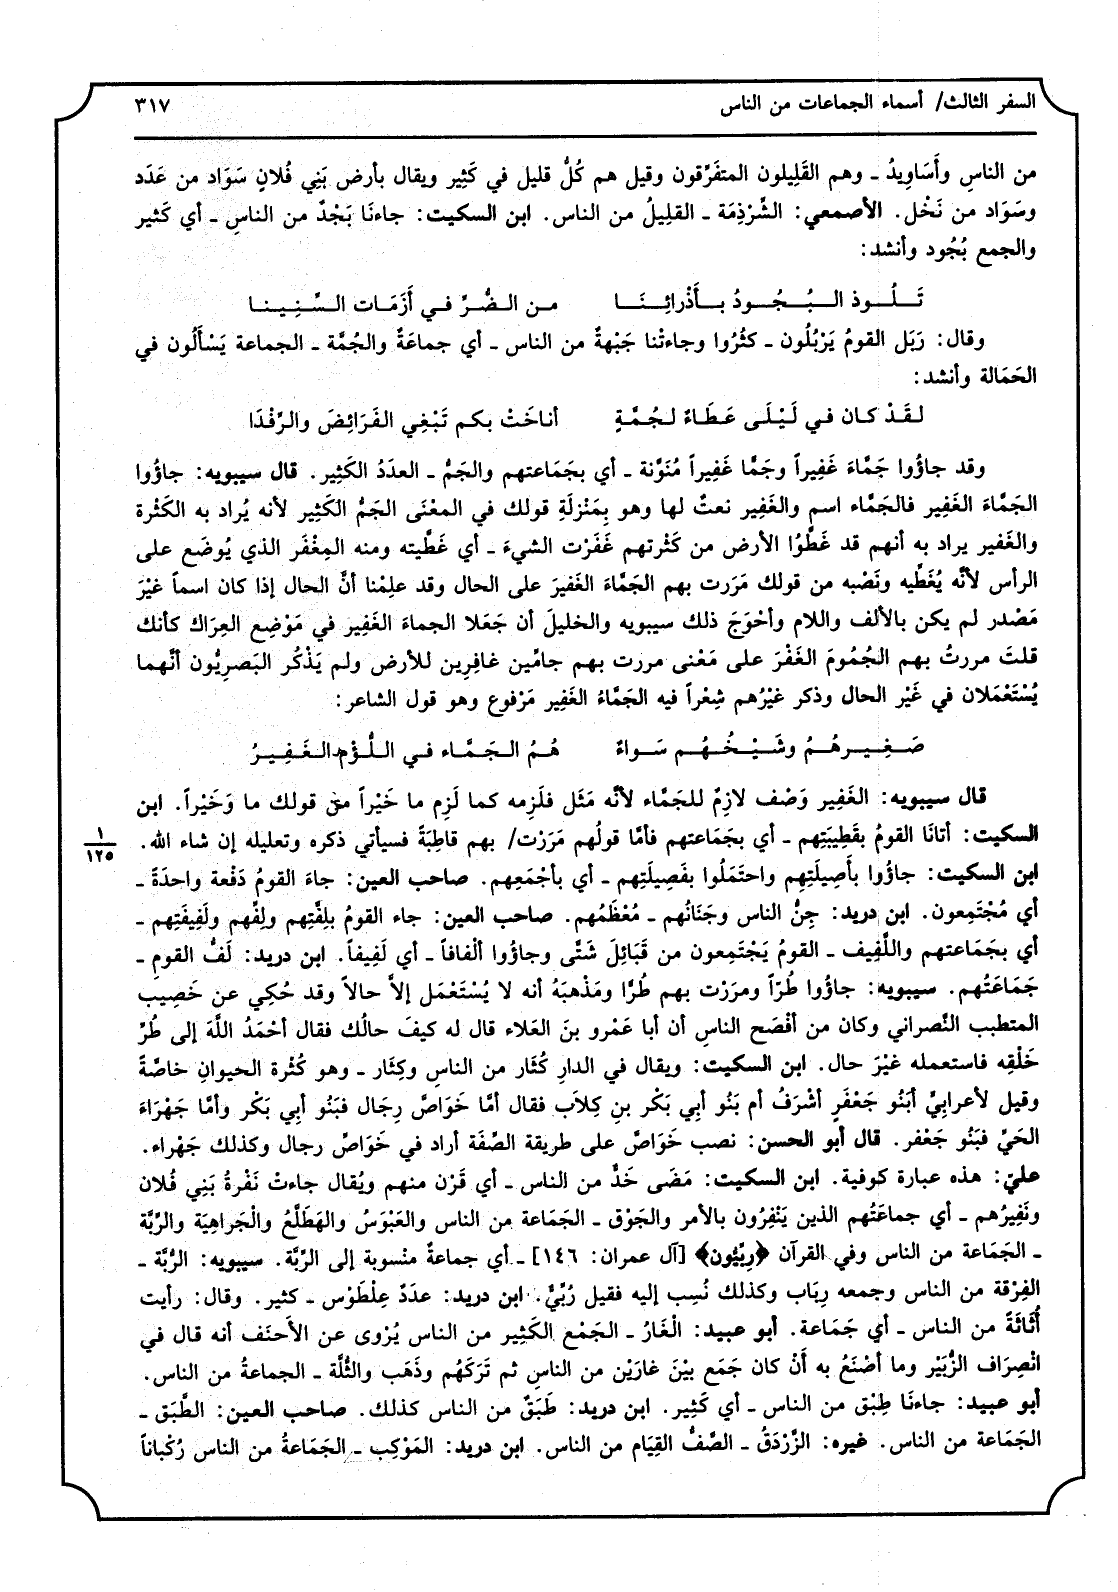 السفر الثالث/ أسماء الجماعات من الناس ٣١٧
من الناس وأَسَاوِيدُ ـ وهم القَلِيلون المتفَرِّقون وقيل هم كُلُّ قليل في كَثِير ويقال بأرض بَنِي فُلانٍ سَوَاد من عَدَد
وسَوَاد من نَخْل. الأصمعي: الشِّرْذِمَة ـ القلِيلُ من الناس. ابن السكيت: جاءنَا بَجْدٌ من الناسِ ـ أي كَثير
والجمع بُجُود وأنشد:
تَـلُـوذ الـبُـجُـودُ بـأَذْرائِـنَـا من الضُّرِّ في أَزَمَات السِّنِينا
وقال: رَبَل القومُ يَرْبُلُون ـ كثُرُوا وجاءتْنا جَبْهةٌ من الناس ـ أي جماعَةٌ والجُمَّة ـ الجماعة يَسْأَلُون في
الحَمَالة وأنشد:
لقَدْ كان في لَيْلَى عَطَاءٌ لجُمَّةٍ أناخَتْ بكم تَبْغِي الفَرَائِضَ والرِّفْدَا
وقد جاؤُوا جَمَّاءَ غَفِيراً وجَمَّا غَفِيراً مُنَوَّنة ـ أي بجَمَاعتهم والجَمُّ ـ العدَدُ الكَثِير. قال سيبويه: جاؤُوا
الجَمَّاءَ الغَفِير فالجَمَّاء اسم والغَفِير نعتٌ لها وهو بِمَنْزلَةِ قولك في المعْنَى الجَمُّ الكَثِير لأنه يُراد به الكَثْرة
والغَفير يراد به أنهم قد غَطَّوُا الأرض من كَثْرتهم غَفَرْت الشيءَ ـ أي غَطَّيته ومنه المِغْفَر الذي يُوضَع على
الرأس لأنَّه يُغَطِّيه ونَصْبه من قولك مَرَرت بهم الجَمَّاءَ الغَفيرَ على الحال وقد علِمْنا أنَّ الحال إذا كان اسماً غيْرَ
مَصْدر لم يكن بالألف واللام وأحْوَجَ ذلك سيبويه والخليلَ أن جَعَلا الجماءَ الغَفِير في مَوْضِع العِرَاك كأنك
قلتَ مررتُ بهم الجُمُومَ الغَفْرَ على مَعْنى مررت بهم جامِّين غافِرين للأرض ولم يَذْكُر البَصرِيُّون أنَّهما
يُسْتَعْمَلان في غَيْر الحال وذكر غيْرُهم شِعْراً فيه الجَمَّاءُ الغَفِير مَرْفوع وهو قول الشاعر:
صَغِيرهُمُ وشَيْخُهُم سَواءٌ هُمُ الجَمَّاء في اللُّؤْمِ الغَفِيرُ
قال سيبويه: الغَفِير وَصْف لازِمٌ للجَمَّاء لأنَّه مَثَل فلَزِمه كما لَزِم ما خَيْراً من قولك ما وَخَيْراً. ابن
السكيت: أتانَا القومُ بقَطِيبَتِهم ـ أي بجَمَاعتهم فأمَّا قولُهم مَرَرْت/ بهم قاطِبَةً فسيأتي ذكره وتعليله إن شاء الله.
١
١٢٥
ابن السكيت: جاؤُوا بأَصِيلَتِهم واحتَمَلُوا بفَصِيلَتِهم ـ أي بأجْمَعِهم. صاحب العين: جاءَ القومُ دَفْعة واحدَةً ـ
أي مُجْتَمِعون. ابن دريد: جِنُّ الناس وجَنَانُهم ـ مُعْظَمُهم. صاحب العين: جاء القومُ بلِفَّتِهم ولِفِّهم ولَفِيفَتِهم ـ
أي بجَمَاعتهم واللَّفِيف ـ القومُ يَجْتَمِعون من قَبَائِلَ شَتَّى وجاؤُوا ألْفافاً ـ أي لَفِيفاً. ابن دريد: لَفُّ القومِ ـ
جَمَاعَتُهم. سيبويه: جاؤُوا طُرّاً ومرَرْت بهم طُرًّا ومَذْهبَهُ أنه لا يُسْتَعْمَل إلاَّ حالاً وقد حُكِي عن خَصِيب
المتطبب النَّصراني وكان من أفْصَح الناسِ أن أبا عَمْرو بنَ العَلاء قال له كيفَ حالُك فقال أحْمَدُ اللَّهَ إلى طُرِّ
خَلْقِه فاستعمله غيْرَ حال. ابن السكيت: ويقال في الدارِ كُثَار من الناسِ وكِثَار ـ وهو كُثْرة الحيوانِ خاصَّةً
وقيل لأعرابِيٍّ أبَنُو جَعْفَرٍ أشْرَفُ أم بَنُو أبِي بَكْر بنِ كِلاَب فقال أمَّا خَوَاصَّ رِجَال فبَنُو أبِي بَكْر وأمَّا جَهْرَاءَ
الحَيِّ فبَنُو جَعْفر. قال أبو الحسن: نصب خَوَاصَّ على طريقة الصِّفَة أراد في خَوَاصِّ رجال وكذلك جَهْراء.
عليّ: هذه عبارة كوفية. ابن السكيت: مَضَى خَدٌّ من الناس ـ أي قَرْن منهم ويُقال جاءتْ نَفْرةُ بَنِي فُلان
ونَفِيرُهم ـ أي جماعَتُهم الذين يَنْفِرُون بالأمر والجَوْق ـ الجَمَاعة من الناس والعَبْوَسُ والهَطَلَّعُ والْجَراهِيَة والرِّبَّة
ـ الجَمَاعة من الناس وفي القرآن ﴿رِبِّيُّون﴾ [آل عمران: ١٤٦] ـ أي جماعةٌ منْسوبة إلى الرِّبَّة. سيبويه: الرُّبَّة ـ
الفِرْقة من الناس وجمعه رِبَاب وكذلك نُسِب إليه فقيل رُبِّيٌّ. ابن دريد: عدَدٌ عِلْطَوْس ـ كثير. وقال: رأيت
أُثَاثَةً من الناس ـ أي جَمَاعة. أبو عبيد: الْغَارُ ـ الجَمْع الكَثِير من الناس يُرْوى عن الأَحنَف أنه قال في
انْصِرَاف الزُّبَيْر وما أصْنَعُ به أَنْ كان جَمَع بيْنَ غارَيْن من الناسِ ثم تَرَكَهُم وذَهَب والثُّلَّة ـ الجماعةُ من الناس.
أبو عبيد: جاءنَا طِبْق من الناس ـ أي كَثِير. ابن دريد: طَبَقٌ من الناس كذلك. صاحب العين: الطَّبَق ـ
الجَمَاعة من الناس. غيره: الزَّرْدَقُ ـ الصَّفُّ القِيَام من الناس. ابن دريد: المَوْكِب ـ الجَمَاعةُ من الناس رُكْباناً